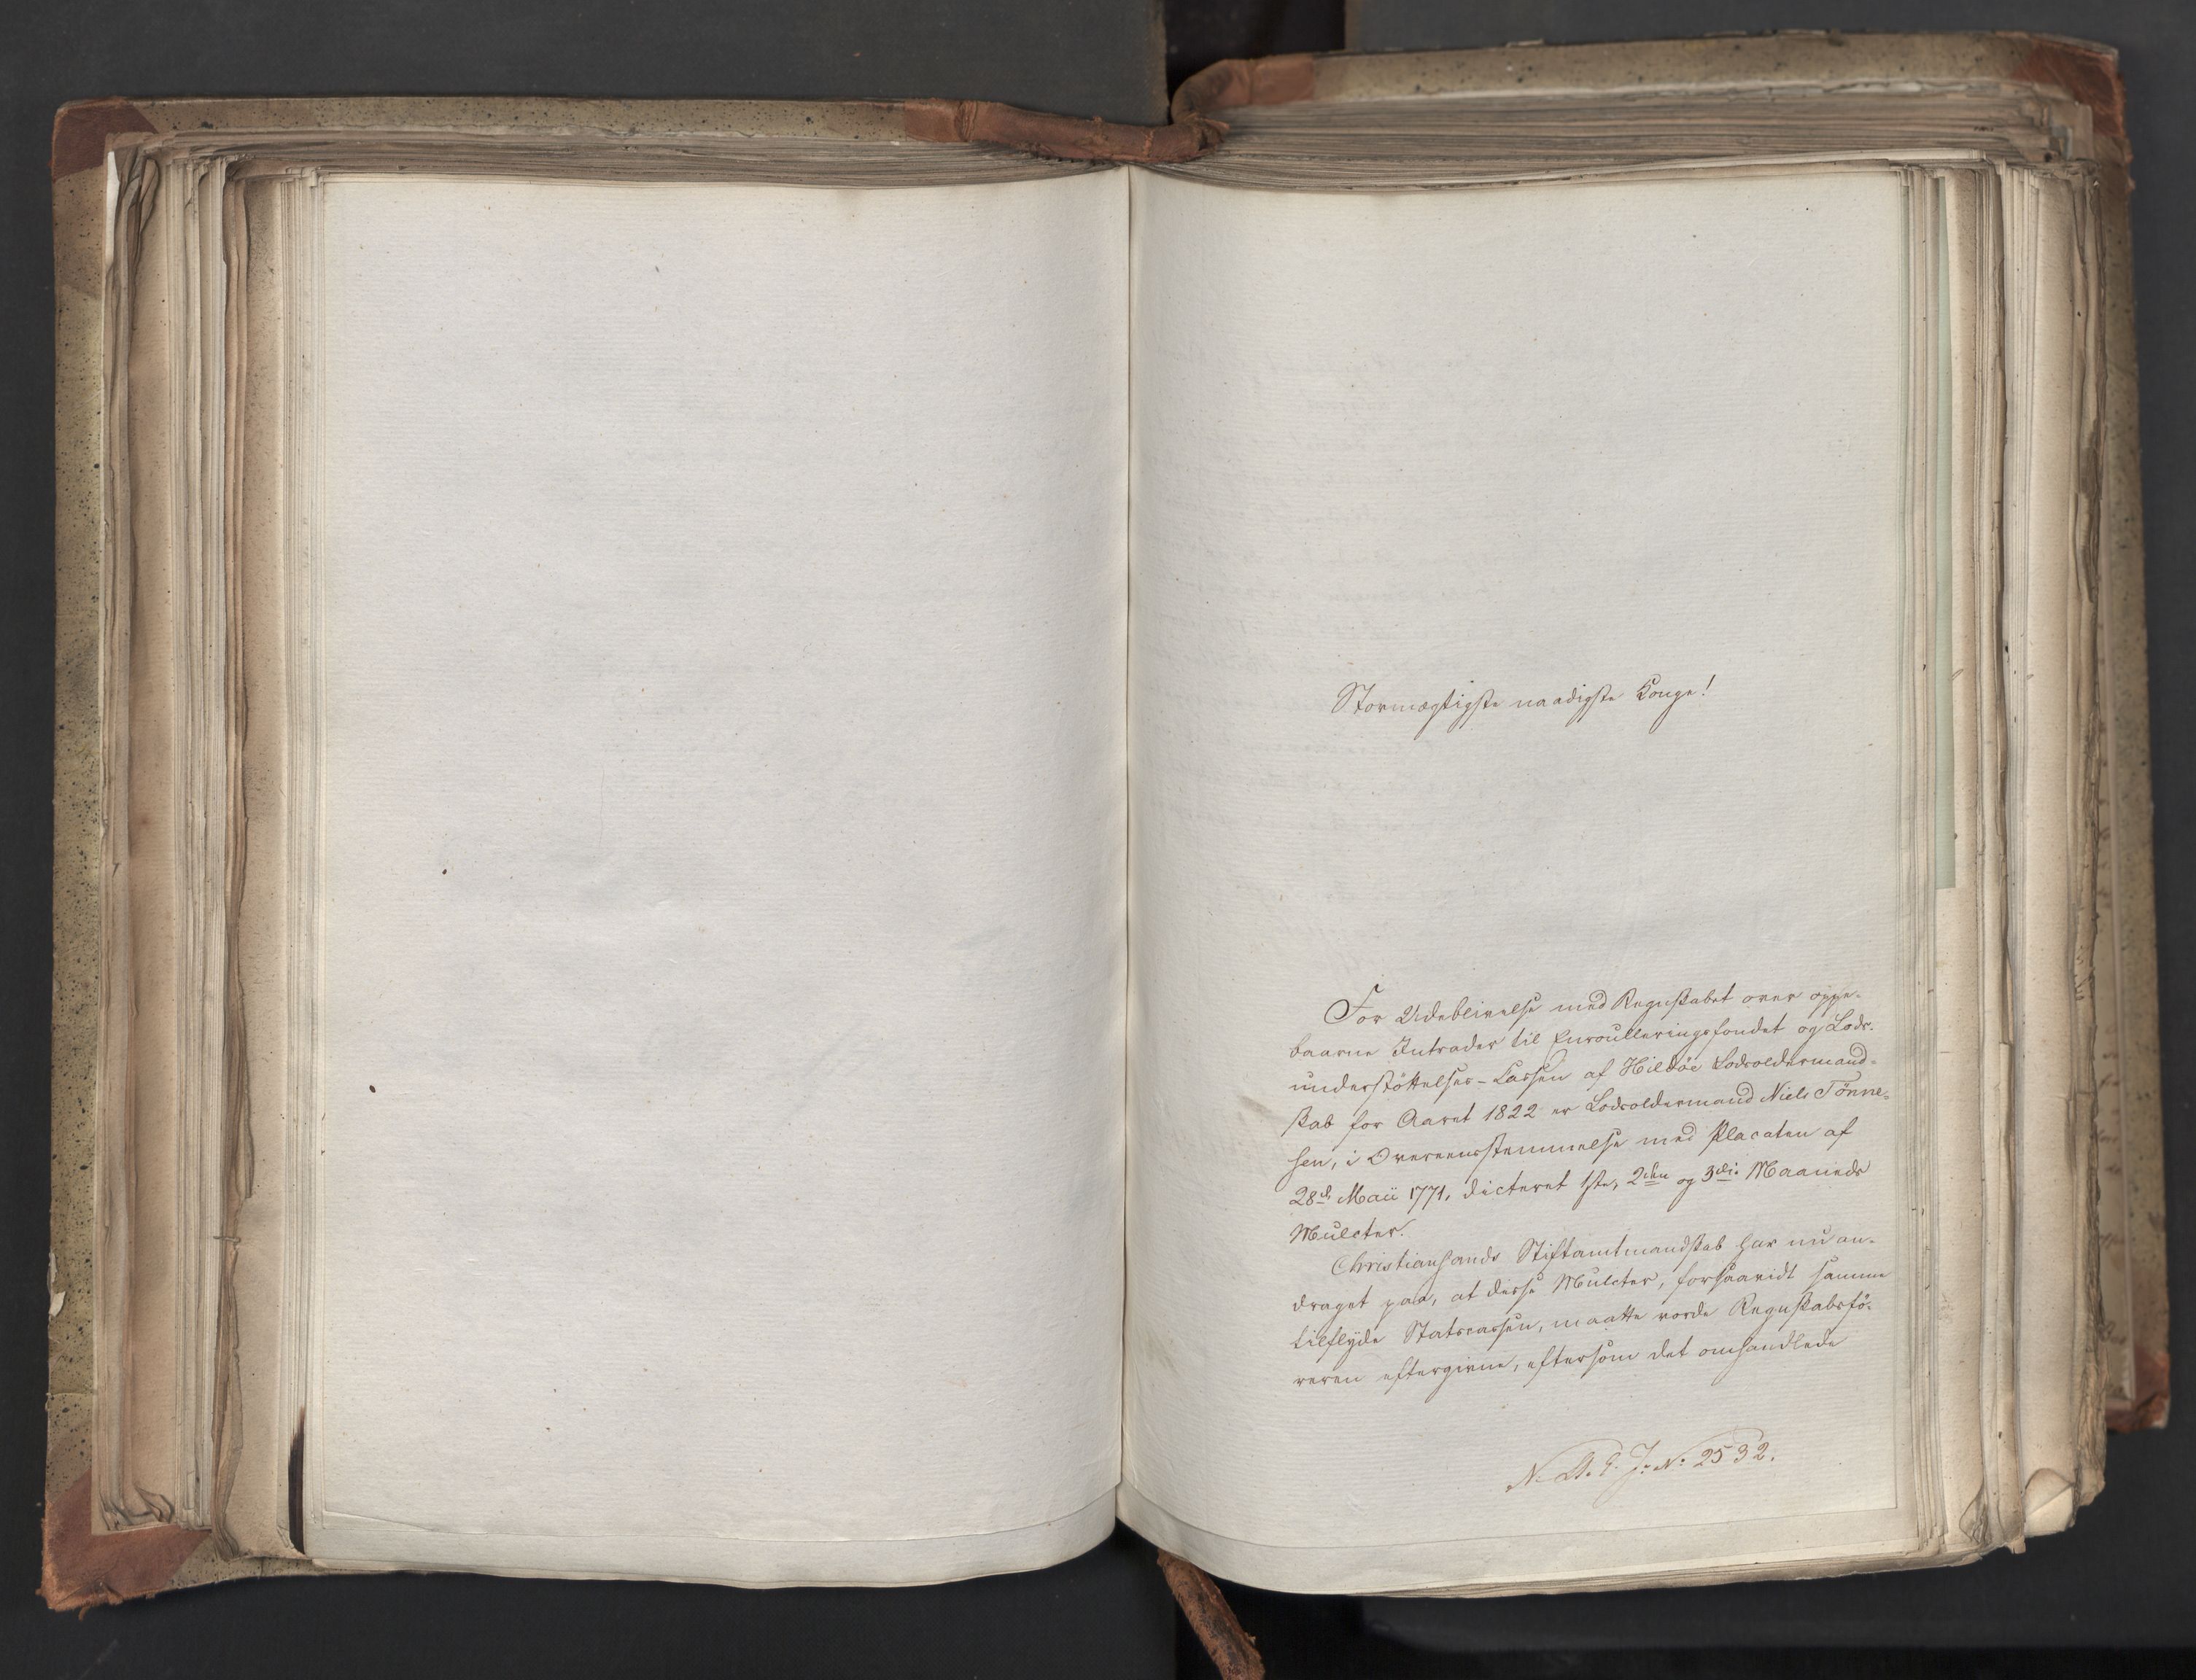 Stormægtigste naadigste Konge!
For Udeblivelse med Regnskabet over oppe-
baarne Intrader til Enroulleringsfondet og Lods-
understøttelses-Cassen af Hildøe Lodsoldermand-
skab for Aaret 1822 er Lodsoldermand Niels Tønne-
sen, i Overeensstemmelse med Placaten af
28d Maii 1771, dicteret 1ste, 2den og 3die Maaneds
Mulcter.
Christiansands Stiftamtmandskab har nu an-
draget paa, at disse Mulcter, forsaavidt samme
tilflyde Statscassen, maatte vorde Regnskabsfø-
reren eftergivne, eftersom det omhandlede
N. A. E. J. No 2532.